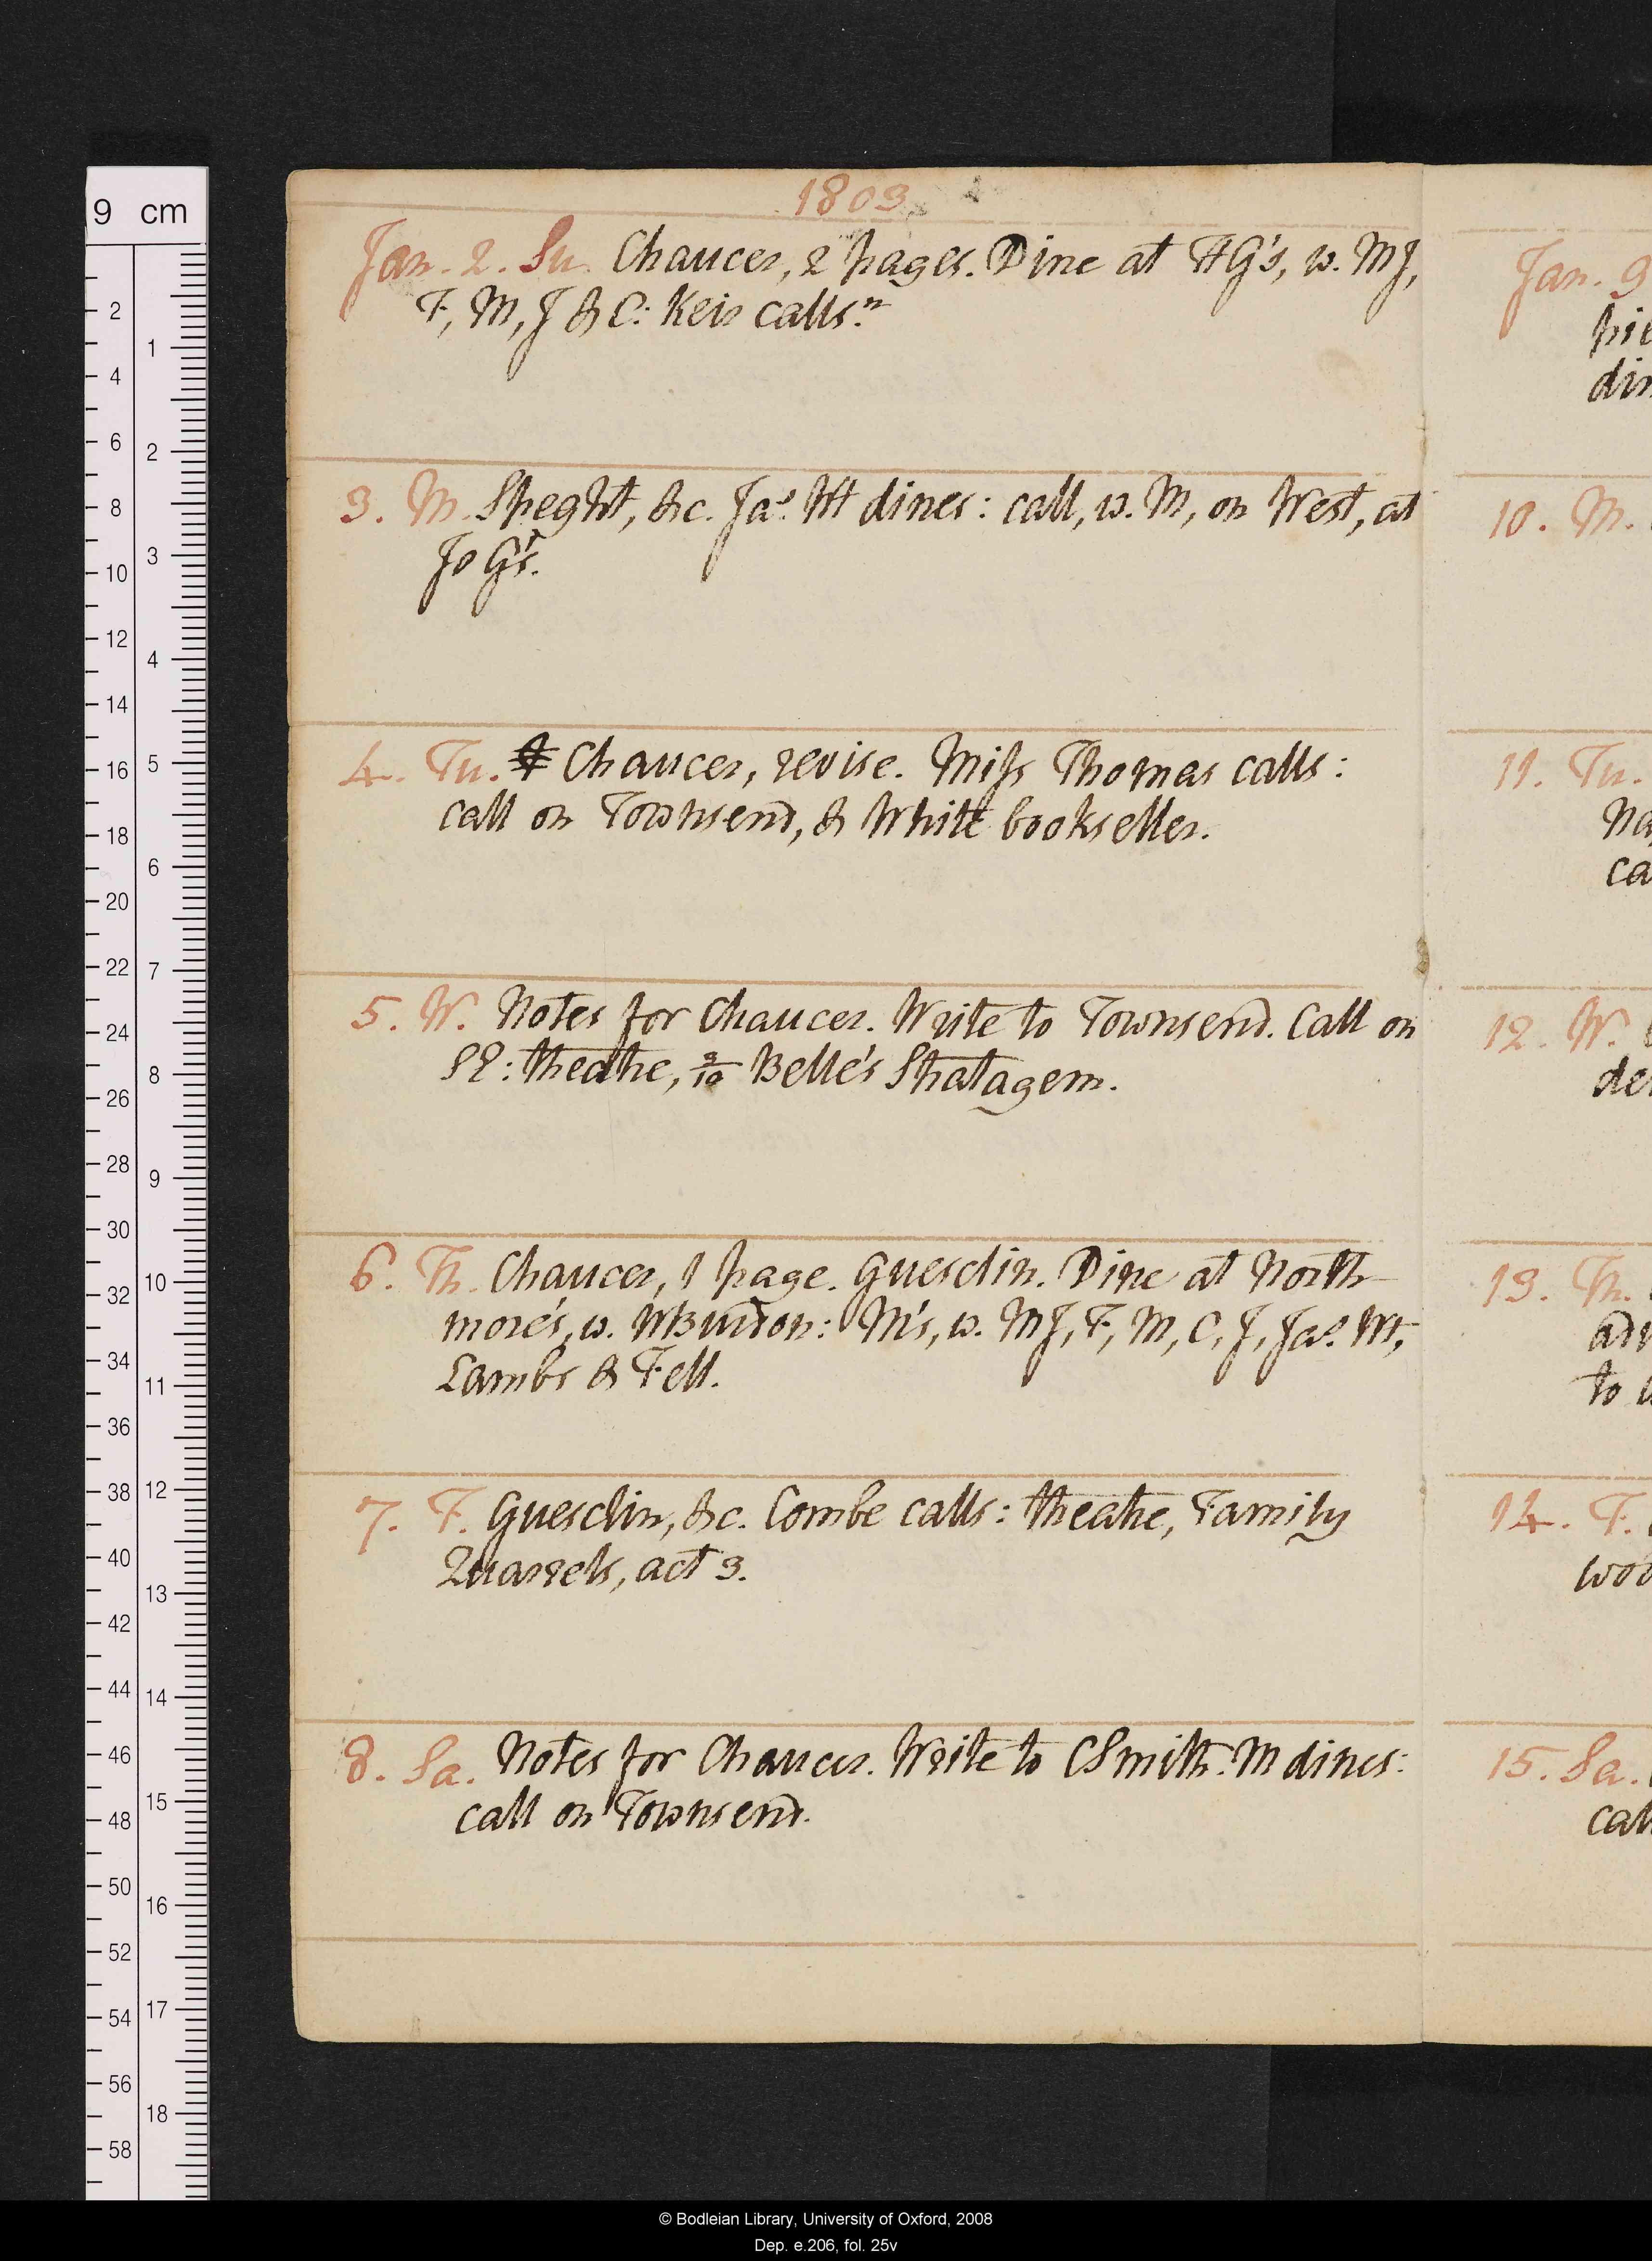 1803
Jan. 2. Su. Chaucer, 2 pages. Dine at HG's, w. MJ,
F, M, J & C: Keir calls.n
3. M. Speght, &c. Jas. Wt dines: call, w. M, on West, at
Jo Gs.
4. Tu. Chaucer, revise. Miss Thomas calls:
call on Townsend, & White bookseller.
5. W. Notes for Chaucer. Write to Townsend. Call on
SE: theatre, 3/10 Belle's Stratagem.
6. Th. Chaucer, 1 page. Guesclin. Dine at North
more's, w. WBurdon: M's, w. MJ, F, M, C, J, Jas. Wt,
Lambs & Fell.
7. F. Guesclin, &c. Combe calls: theatre, Family
Quarrels, act 3.
8. Sa. Notes for Chaucer. Write to CSmith. M dines:
call on Townsend.
Jan. 9
din
10. M.
11. Tu.
Na
ca
12. W.
de
13. Th.
to
14. F.
woo
15. Sa.
call
9 cm
2
4
6
8
10
12
14
16
18
20
22
24
26
28
30
32
34
36
38
40
42
44
46
48
50
52
54
56
58
1
2
3
4
5
6
7
8
9
10
11
12
13
14
15
16
17
18
© Bodleian Library, University of Oxford, 2008
Dep. e.206, fol. 25v